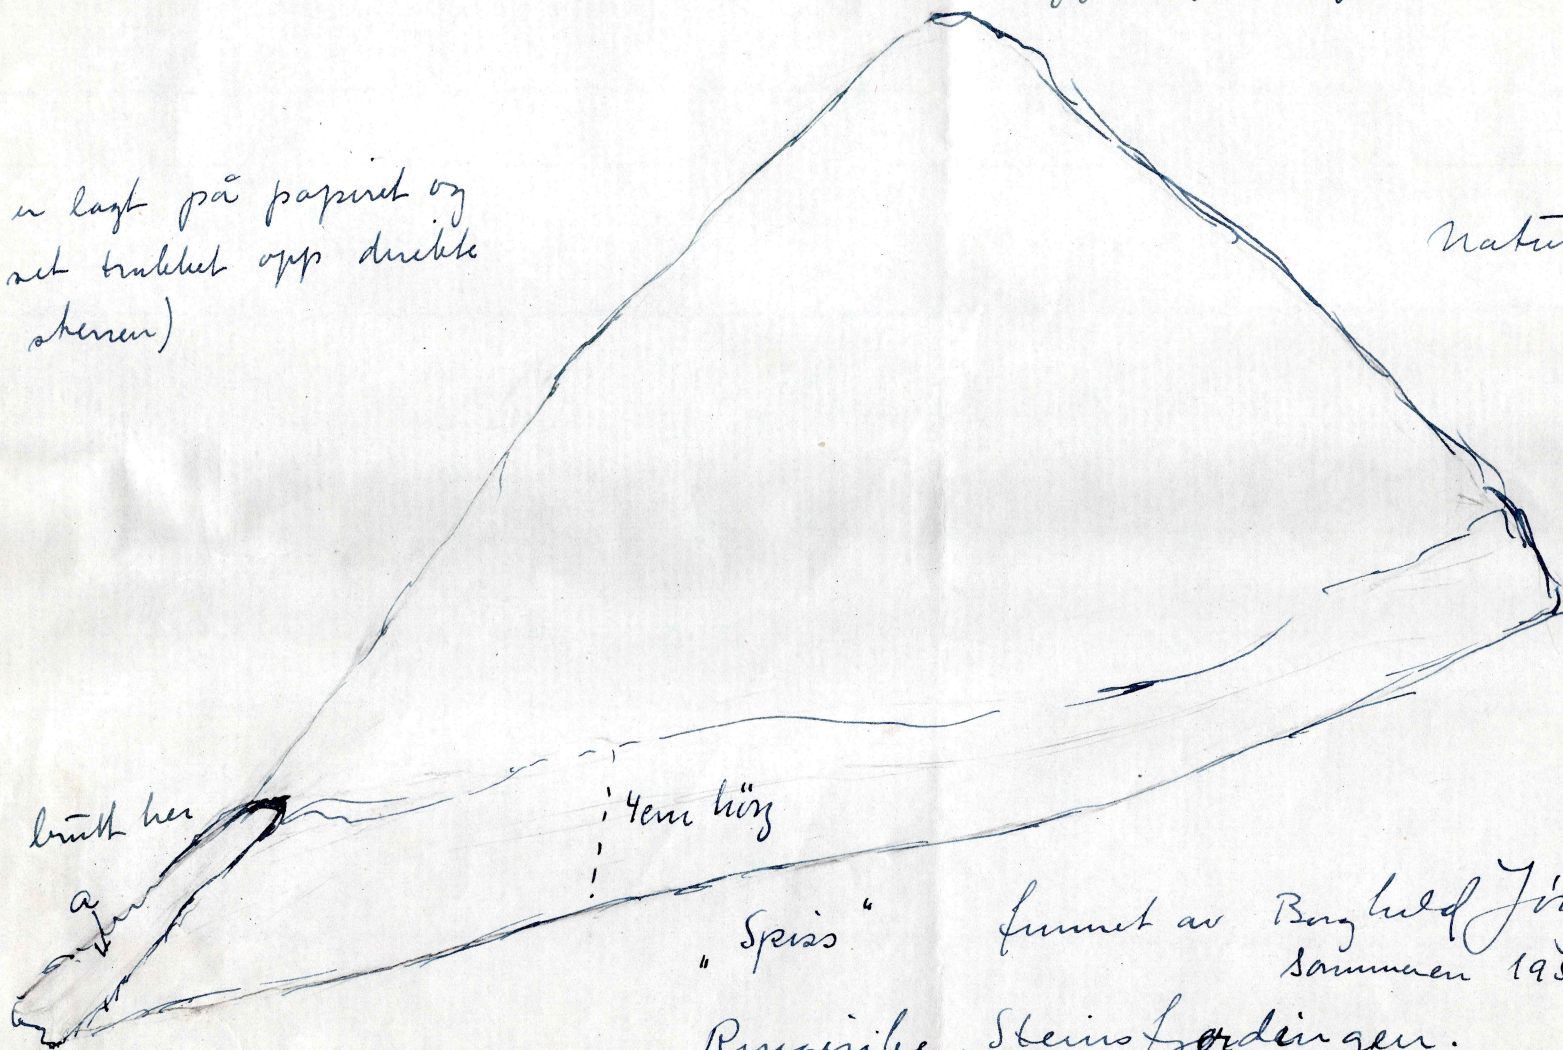 er lagt på papiret og
set trukket opp direkte
stenen)
Natu
brutt her
a
4cm høy
„Spiss“
funnet av Borghild Jö
sommeren 193
Ringerike Steinsfjerdingen.